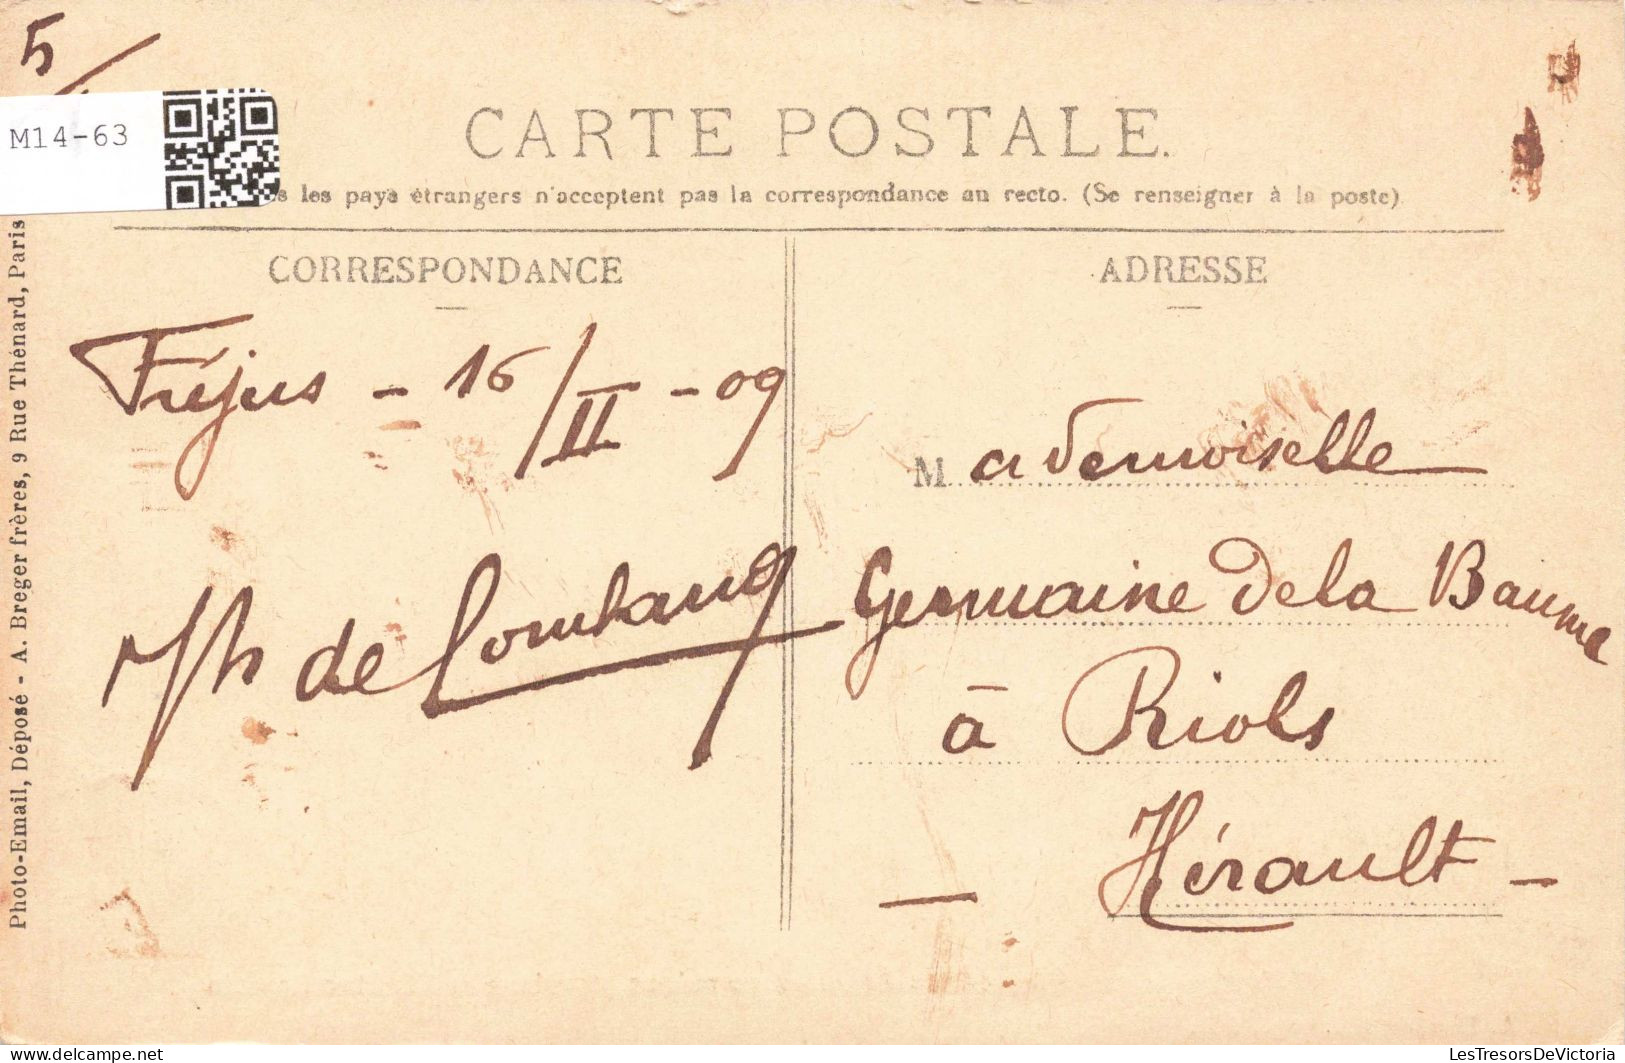 5
M14-63
CARTE POSTALE.
les pays étrangers n'acceptent pas la correspondance au recto. (Se renseigner à la poste)
CORRESPONDANCE
ADRESSE
Fréjus - 16/II - 09
de
Mademoiselle
Germaine de la Baume
à Riols
- Hérault -
Photo-Email, Déposé - A. Breger frères, 9 Rue Thénard, Paris
LesTresorsDeVictoria